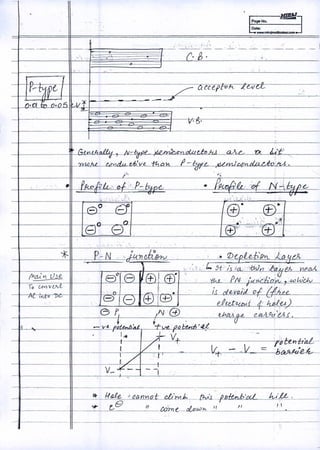 Page No.
Date:
C.B.
P-type
acceptor level
0.01 to 0.05 eV
V.B.
* Generally, N-type semiconductors are a bit
more conductive than P-type semiconductors.
• Profile of P-type
• Profile of N-type
* P-N junction
• Depletion Layer
Main Use
To convert
AC into DC
It is a thin layer near
the PN junction, which
is devoid of (free
electrons & holes)
charge carriers.
P N
-ve potential +ve potential
V+
V-
V+ - V- = potential
barrier
* Hole cannot climb this potential hill.
* e⊖ " come down " " "